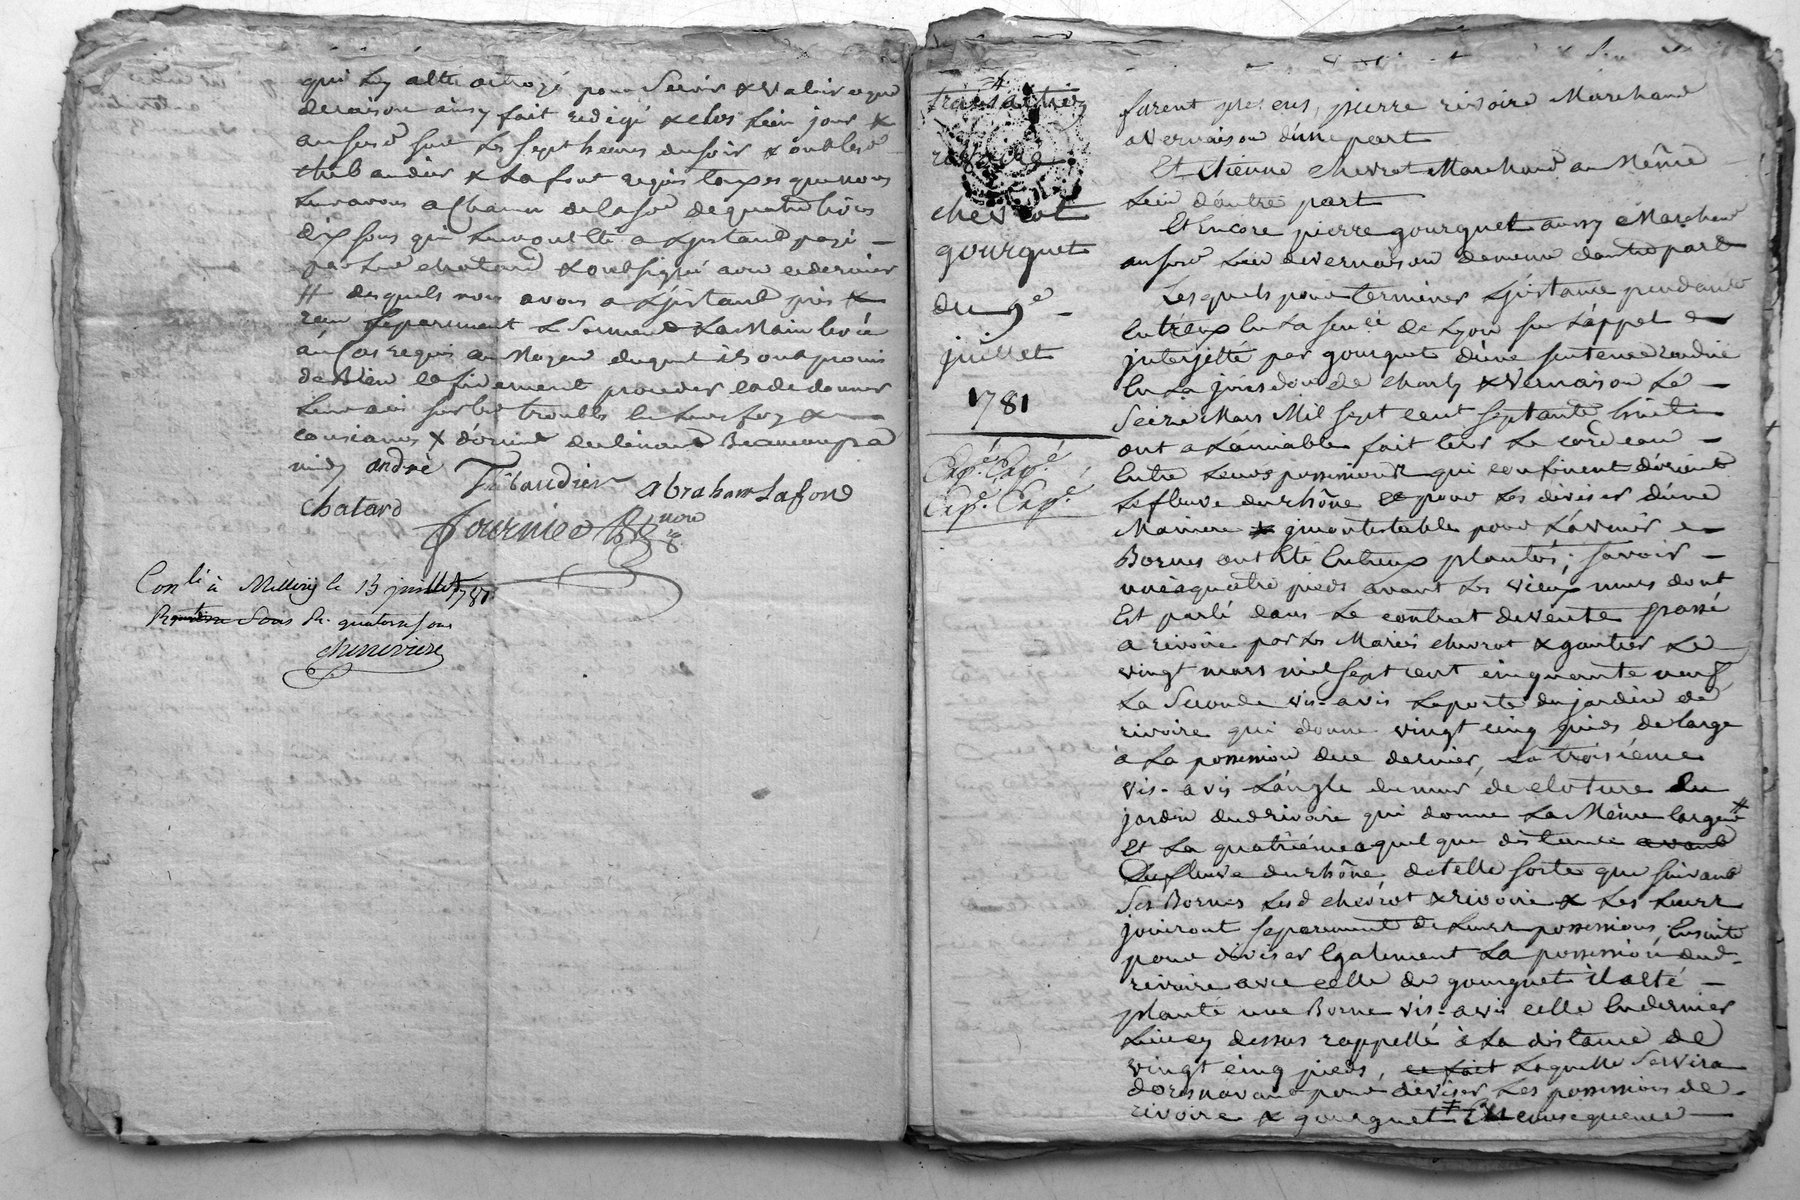 qui luy a été octroyé pour servir & valoir ce que
de raison ainsy fait redigé & clos lesd. jour &
an susd. sur les sept heures du soir & ont lesd.
thibaudier & Lafont requis taxes que nous
leur avons a Chacun de la so.e de quatre livres
dix sous qui leur ont été a L'jnstand payé —
par led. chatard & ont signé avec ce dernier
# desquels nous avons a L'jnstand pris &
reçu separement Le serment La Main levée
au cas requis au Moyen duquel ils ont promis
de bien et fidement proceder et de donner
Leur avis sur les troubles en Leur foy &
consiance & d'orient
midy andré Thibaudier abraham Lafond
Chatard
Fournier No.re Rl
Con.lé à Millery le 13 juillet 1781
Reçu sous Rl. quatorze sous
Chenevière
transaction
rivoire
chevrot
gourguet
du 9.e
juillet
1781
Exp.é Exp.é
Exp.é Exp.é
furent presens, pierre rivoire Marchand
a Vernaison d'une part
Et Etienne chevrot Marchand au Même
Lieu d'autre part
Et Encore pierre gourguet aussy Marchand
au susd. Lieu de vernaison demeur.t d'autre part
Lesquels pour terminer L'jnstance pendante
Entr'eux En La sen.ée de Lyon sur L'appel —
jnterjetté par gourguet d'une sentence rendue
En La jurisdon de charly & vernaison Le —
Seize Mars Mil sept cent septante huit
ont a L'amiable fait tirer Le cordeau —
Entre Leurs possessions qui confinent d'orient
Le fleuve du rhône et pour Les diviser d'une
Maniere & jncontestable pour L'avenir —
Bornes ont été Entreux plantés, savoir —
une a quatre pieds avant Les vieux murs dont
Est parlé dans Le contrat de vente passé
a rivoire par Les Mariés chevrot & gautier Le
vingt mars mil sept cent cinquante neuf
La Seconde vis-avis La porte du jardin de
rivoire qui donne vingt cinq pieds de large
à La possession de ce dernier, La troisiéme
vis-avis L'angle du mur de cloture du
jardin dud rivoire qui donne La Même largeur #
Et La quatriéme a quelque distance avant
Du fleuve du rhône de telle sorte que suivant
Ses Bornes Lesd chevrot & rivoire & Les Leurs
jouiront separement de Leurs possessions. Ensuite
pour diviser Egalement La possession dud.
rivoire avec celle de gourguet il a été —
planté une Borne vis-avis celle En dernier
Lieu cy dessus rappellé à La distance de
vingt cinq pieds, ce fait Laquelle Servira
doresnavant pour diviser Les possessions de —
rivoire & gourguet ‡ En consequence —